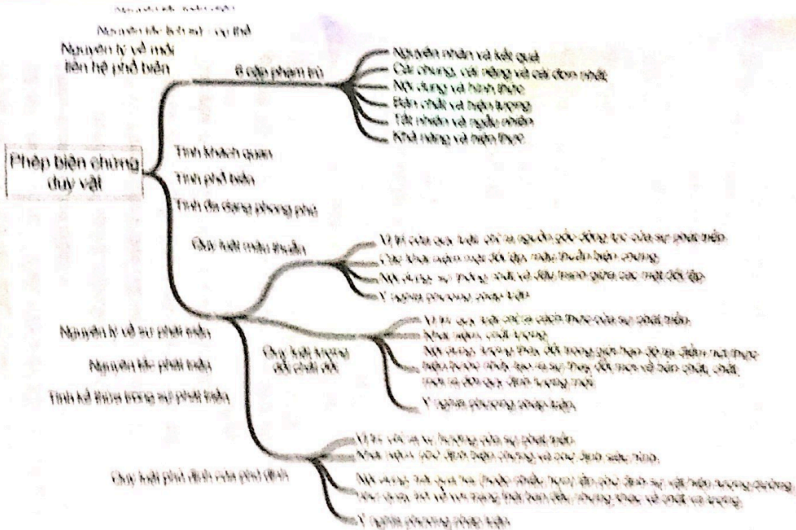 Nguyên tắc toàn diện
Nguyên tắc lịch sử - cụ thể
Nguyên lý về mối
liên hệ phổ biến
6 cặp phạm trù
Nguyên nhân và kết quả
Cái chung, cái riêng và cái đơn nhất
Nội dung và hình thức
Bản chất và hiện tượng
Tất nhiên và ngẫu nhiên
Khả năng và hiện thực
Phép biện chứng
duy vật
Tính khách quan
Tính phổ biến
Tính đa dạng phong phú
Quy luật mâu thuẫn
Vị trí của quy luật: chỉ ra nguồn gốc động lực của sự phát triển
Các khái niệm: mặt đối lập, mâu thuẫn biện chứng
Nội dung: sự thống nhất và đấu tranh giữa các mặt đối lập
Ý nghĩa phương pháp luận
Nguyên lý về sự phát triển
Nguyên tắc phát triển
Tính kế thừa trong sự phát triển
Quy luật lượng
đổi chất đổi
Vị trí: quy luật chỉ ra cách thức của sự phát triển
Khái niệm: chất, lượng
Nội dung: lượng thay đổi trong giới hạn độ tại điểm nút thực
hiện bước nhảy tạo ra sự thay đổi mới về bản chất, chất
mới ra đời quy định lượng mới
Ý nghĩa phương pháp luận
Quy luật phủ định của phủ định
Vị trí: chỉ ra xu hướng của sự phát triển
Khái niệm: phủ định biện chứng và phủ định siêu hình
Nội dung: trải qua hai (hoặc nhiều hơn) lần phủ định sự vật hiện tượng dường
như quay trở về với trạng thái ban đầu nhưng khác về chất và lượng
Ý nghĩa phương pháp luận